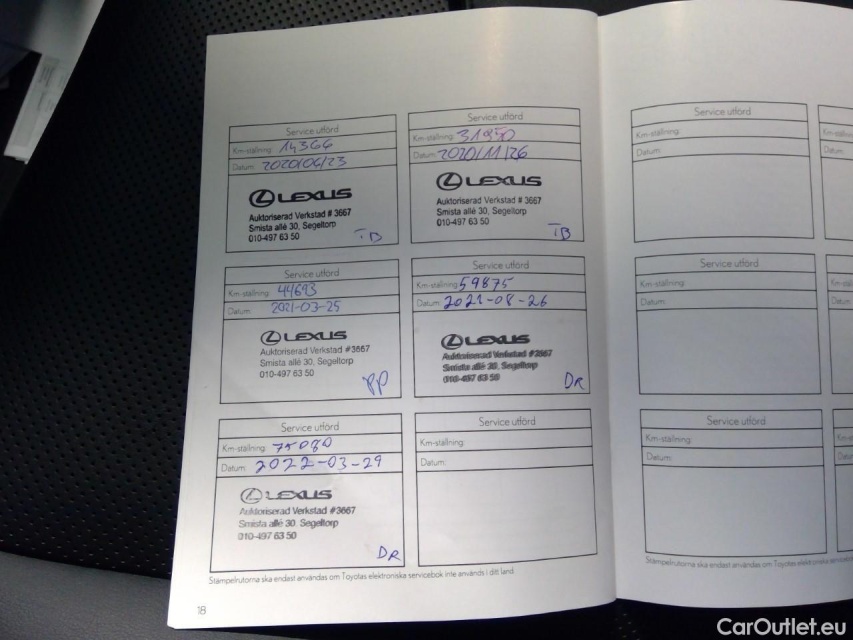 Service utförd
Km-ställning: 14366
Datum: 2020/06/23
LEXUS
Auktoriserad Verkstad # 3667
Smista allé 30, Segeltorp
010-497 63 50
TB
Service utförd
Km-ställning: 31950
Datum: 2020/11/26
LEXUS
Auktoriserad Verkstad # 3667
Smista allé 30, Segeltorp
010-497 63 50
TB
Service utförd
Km-ställning: 44693
Datum: 2021-03-25
LEXUS
Auktoriserad Verkstad #3667
Smista allé 30, Segeltorp
010-497 63 50
PP
Service utförd
Km-ställning: 59875
Datum: 2021-08-26
LEXUS
Auktoriserad Verkstad #3667
Smista allé 30, Segeltorp
010-497 63 50
DR
Service utförd
Km-ställning: 75080
Datum: 2022-03-29
LEXUS
Auktoriserad Verkstad #3667
Smista allé 30, Segeltorp
010-497 63 50
DR
Service utförd
Km-ställning:
Datum:
Stämpelrutorna ska endast användas om Toyotas elektroniska servicebok inte används i ditt land.
18
Service utförd
Km-ställning:
Datum:
Service utförd
Km-ställning:
Datum:
Service utförd
Km-ställning:
Datum:
Stämpelrutorna ska endast användas om Toyotas elektroniska
CarOutlet.eu